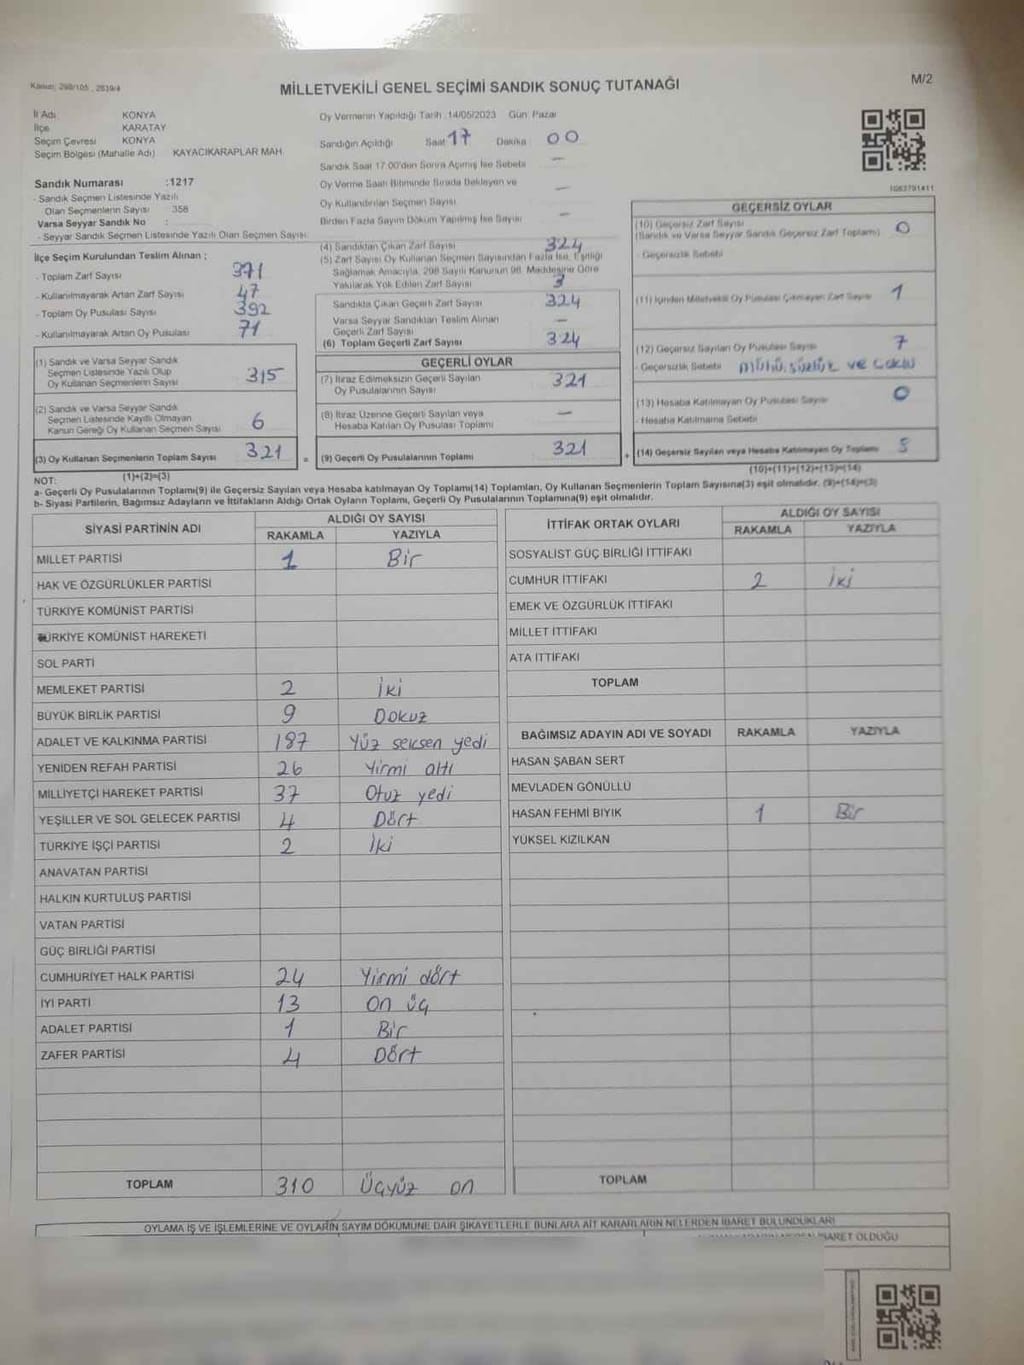 Kanun: 298/105 , 2839/4
MİLLETVEKİLİ GENEL SEÇİMİ SANDIK SONUÇ TUTANAĞI
M/2
İl Adı KONYA
İlçe KARATAY
Seçim Çevresi KONYA
Seçim Bölgesi (Mahalle Adı) KAYACIKARAPLAR MAH.
Sandık Numarası :1217
- Sandık Seçmen Listesinde Yazılı
Olan Seçmenlerin Sayısı 358
Varsa Seyyar Sandık No :
- Seyyar Sandık Seçmen Listesinde Yazılı Olan Seçmen Sayısı:
İlçe Seçim Kurulundan Teslim Alınan ;
- Toplam Zarf Sayısı 371
- Kullanılmayarak Artan Zarf Sayısı 47
- Toplam Oy Pusulası Sayısı 392
- Kullanılmayarak Artan Oy Pusulası 71
(1) Sandık ve Varsa Seyyar Sandık
Seçmen Listesinde Yazılı Olup
Oy Kullanan Seçmenlerin Sayısı 315
(2) Sandık ve Varsa Seyyar Sandık
Seçmen Listesinde Kayıtlı Olmayan
Kanun Gereği Oy Kullanan Seçmen Sayısı 6
(3) Oy Kullanan Seçmenlerin Toplam Sayısı 321 =
(1)+(2)=(3)
Oy Vermenin Yapıldığı Tarih :14/05/2023 Gün: Pazar
Sandığın Açıldığı Saat 17 Dakika 00
Sandık Saat 17:00'den Sonra Açılmış İse Sebebi —
Oy Verme Saati Bitiminde Sırada Bekleyen ve
Oy Kullandırılan Seçmen Sayısı —
Birden Fazla Sayım Döküm Yapılmış İse Sayısı —
(4) Sandıktan Çıkan Zarf Sayısı 324
(5) Zarf Sayısı Oy Kullanan Seçmen Sayısından Fazla İse, Eşitliği
Sağlamak Amacıyla, 298 Sayılı Kanunun 98. Maddesine Göre
Yakılarak Yok Edilen Zarf Sayısı 3
Sandıkta Çıkan Geçerli Zarf Sayısı 324
Varsa Seyyar Sandıktan Teslim Alınan
Geçerli Zarf Sayısı —
(6) Toplam Geçerli Zarf Sayısı 324
GEÇERLİ OYLAR
(7) İtiraz Edilmeksizin Geçerli Sayılan
Oy Pusulalarının Sayısı 321
(8) İtiraz Üzerine Geçerli Sayılan veya
Hesaba Katılan Oy Pusulası Toplamı —
(9) Geçerli Oy Pusulalarının Toplamı 321 +
1063791411
GEÇERSİZ OYLAR
(10) Geçersiz Zarf Sayısı
(Sandık ve Varsa Seyyar Sandık Geçersiz Zarf Toplamı) 0
- Geçersizlik Sebebi
(11) İçinden Milletvekili Oy Pusulası Çıkmayan Zarf Sayısı 1
(12) Geçersiz Sayılan Oy Pusulası Sayısı 7
- Geçersizlik Sebebi mühürsüzlük ve çoklu
(13) Hesaba Katılmayan Oy Pusulası Sayısı 0
- Hesaba Katılmama Sebebi
(14) Geçersiz Sayılan veya Hesaba Katılmayan Oy Toplamı
(10)+(11)+(12)+(13)=(14)
NOT:
a- Geçerli Oy Pusulalarının Toplamı(9) ile Geçersiz Sayılan veya Hesaba katılmayan Oy Toplamı(14) Toplamları, Oy Kullanan Seçmenlerin Toplam Sayısına(3) eşit olmalıdır. (9)+(14)=(3)
b- Siyasi Partilerin, Bağımsız Adayların ve İttifakların Aldığı Ortak Oyların Toplamı, Geçerli Oy Pusulalarının Toplamına(9) eşit olmalıdır.
SİYASİ PARTİNİN ADI ALDIĞI OY SAYISI
RAKAMLA YAZIYLA
MİLLET PARTİSİ 1 Bir
HAK VE ÖZGÜRLÜKLER PARTİSİ
TÜRKİYE KOMÜNİST PARTİSİ
TÜRKİYE KOMÜNİST HAREKETİ
SOL PARTİ
MEMLEKET PARTİSİ 2 İki
BÜYÜK BİRLİK PARTİSİ 9 Dokuz
ADALET VE KALKINMA PARTİSİ 187 Yüz seksen yedi
YENİDEN REFAH PARTİSİ 26 Yirmi altı
MİLLİYETÇİ HAREKET PARTİSİ 37 Otuz yedi
YEŞİLLER VE SOL GELECEK PARTİSİ 4 Dört
TÜRKİYE İŞÇİ PARTİSİ 2 İki
ANAVATAN PARTİSİ
HALKIN KURTULUŞ PARTİSİ
VATAN PARTİSİ
GÜÇ BİRLİĞİ PARTİSİ
CUMHURİYET HALK PARTİSİ 24 Yirmi dört
İYİ PARTİ 13 On üç
ADALET PARTİSİ 1 Bir
ZAFER PARTİSİ 4 Dört
TOPLAM 310 Üçyüz on
İTTİFAK ORTAK OYLARI ALDIĞI OY SAYISI
RAKAMLA YAZIYLA
SOSYALİST GÜÇ BİRLİĞİ İTTİFAKI
CUMHUR İTTİFAKI 2 İki
EMEK VE ÖZGÜRLÜK İTTİFAKI
MİLLET İTTİFAKI
ATA İTTİFAKI
TOPLAM
BAĞIMSIZ ADAYIN ADI VE SOYADI RAKAMLA YAZIYLA
HASAN ŞABAN SERT
MEVLADEN GÖNÜLLÜ
HASAN FEHMİ BIYIK 1 Bir
YÜKSEL KIZILKAN
TOPLAM
OYLAMA İŞ VE İŞLEMLERİNE VE OYLARIN SAYIM DÖKÜMÜNE DAİR ŞİKAYETLERLE BUNLARA AİT KARARLARIN NELERDEN İBARET BULUNDUKLARI
OLDUĞU